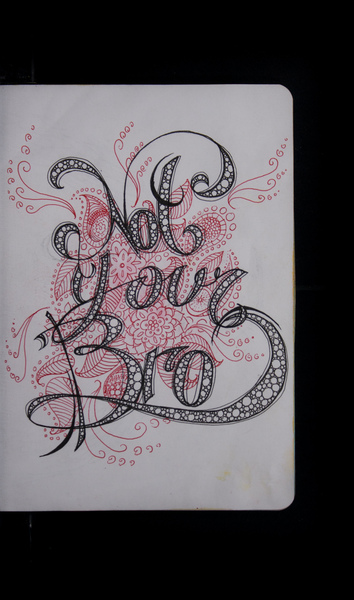 Not
Your
Bro